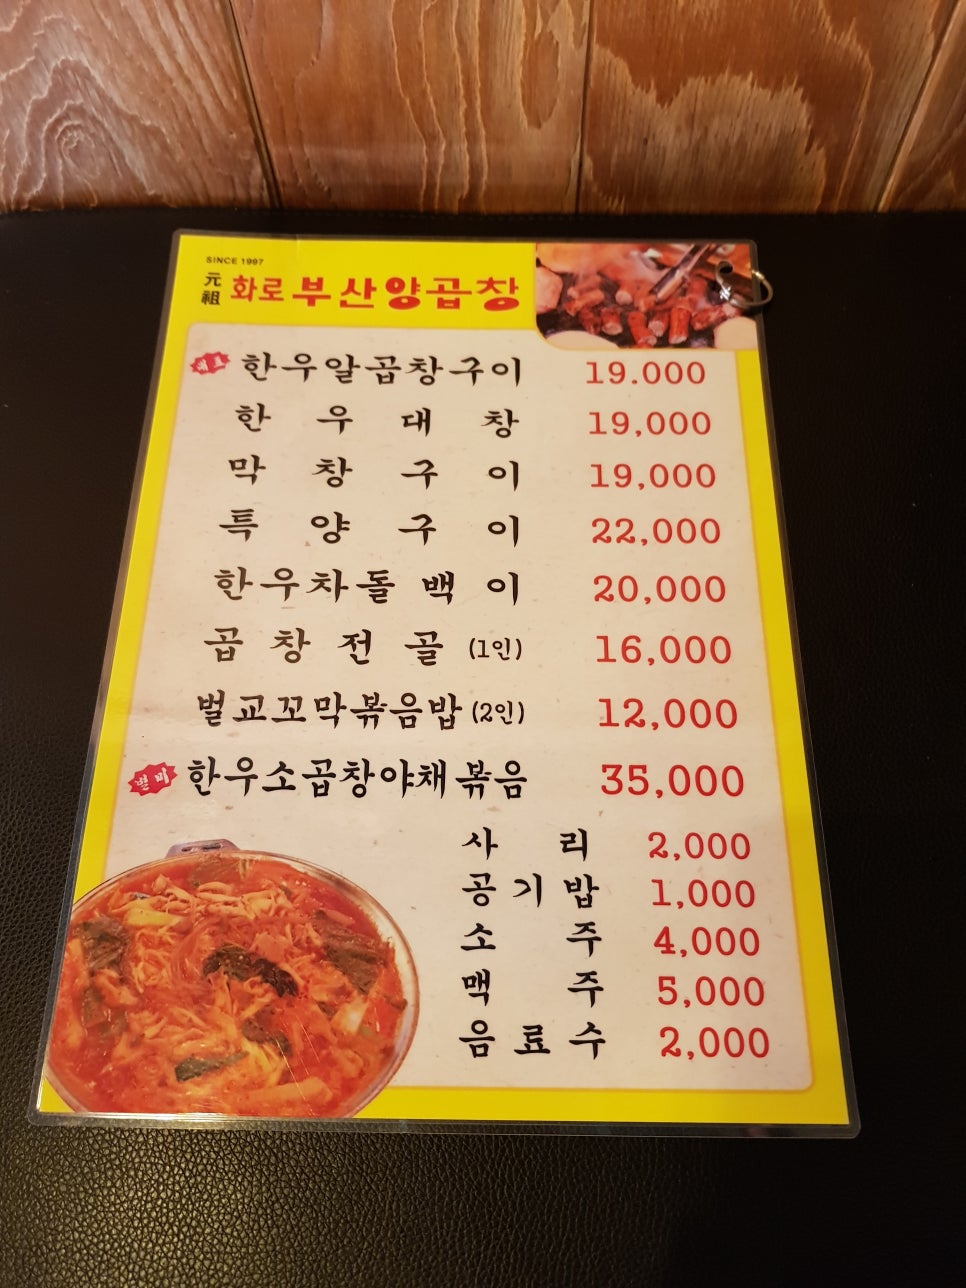 SINCE 1997
元祖 화로 부산양곱창
대표 한우알곱창구이 19.000
한우대창 19,000
막창구이 19,000
특양구이 22,000
한우차돌백이 20,000
곱창전골 (1인) 16,000
벌교꼬막볶음밥 (2인) 12,000
별미 한우소곱창야채볶음 35,000
사리 2,000
공기밥 1,000
소주 4,000
맥주 5,000
음료수 2,000